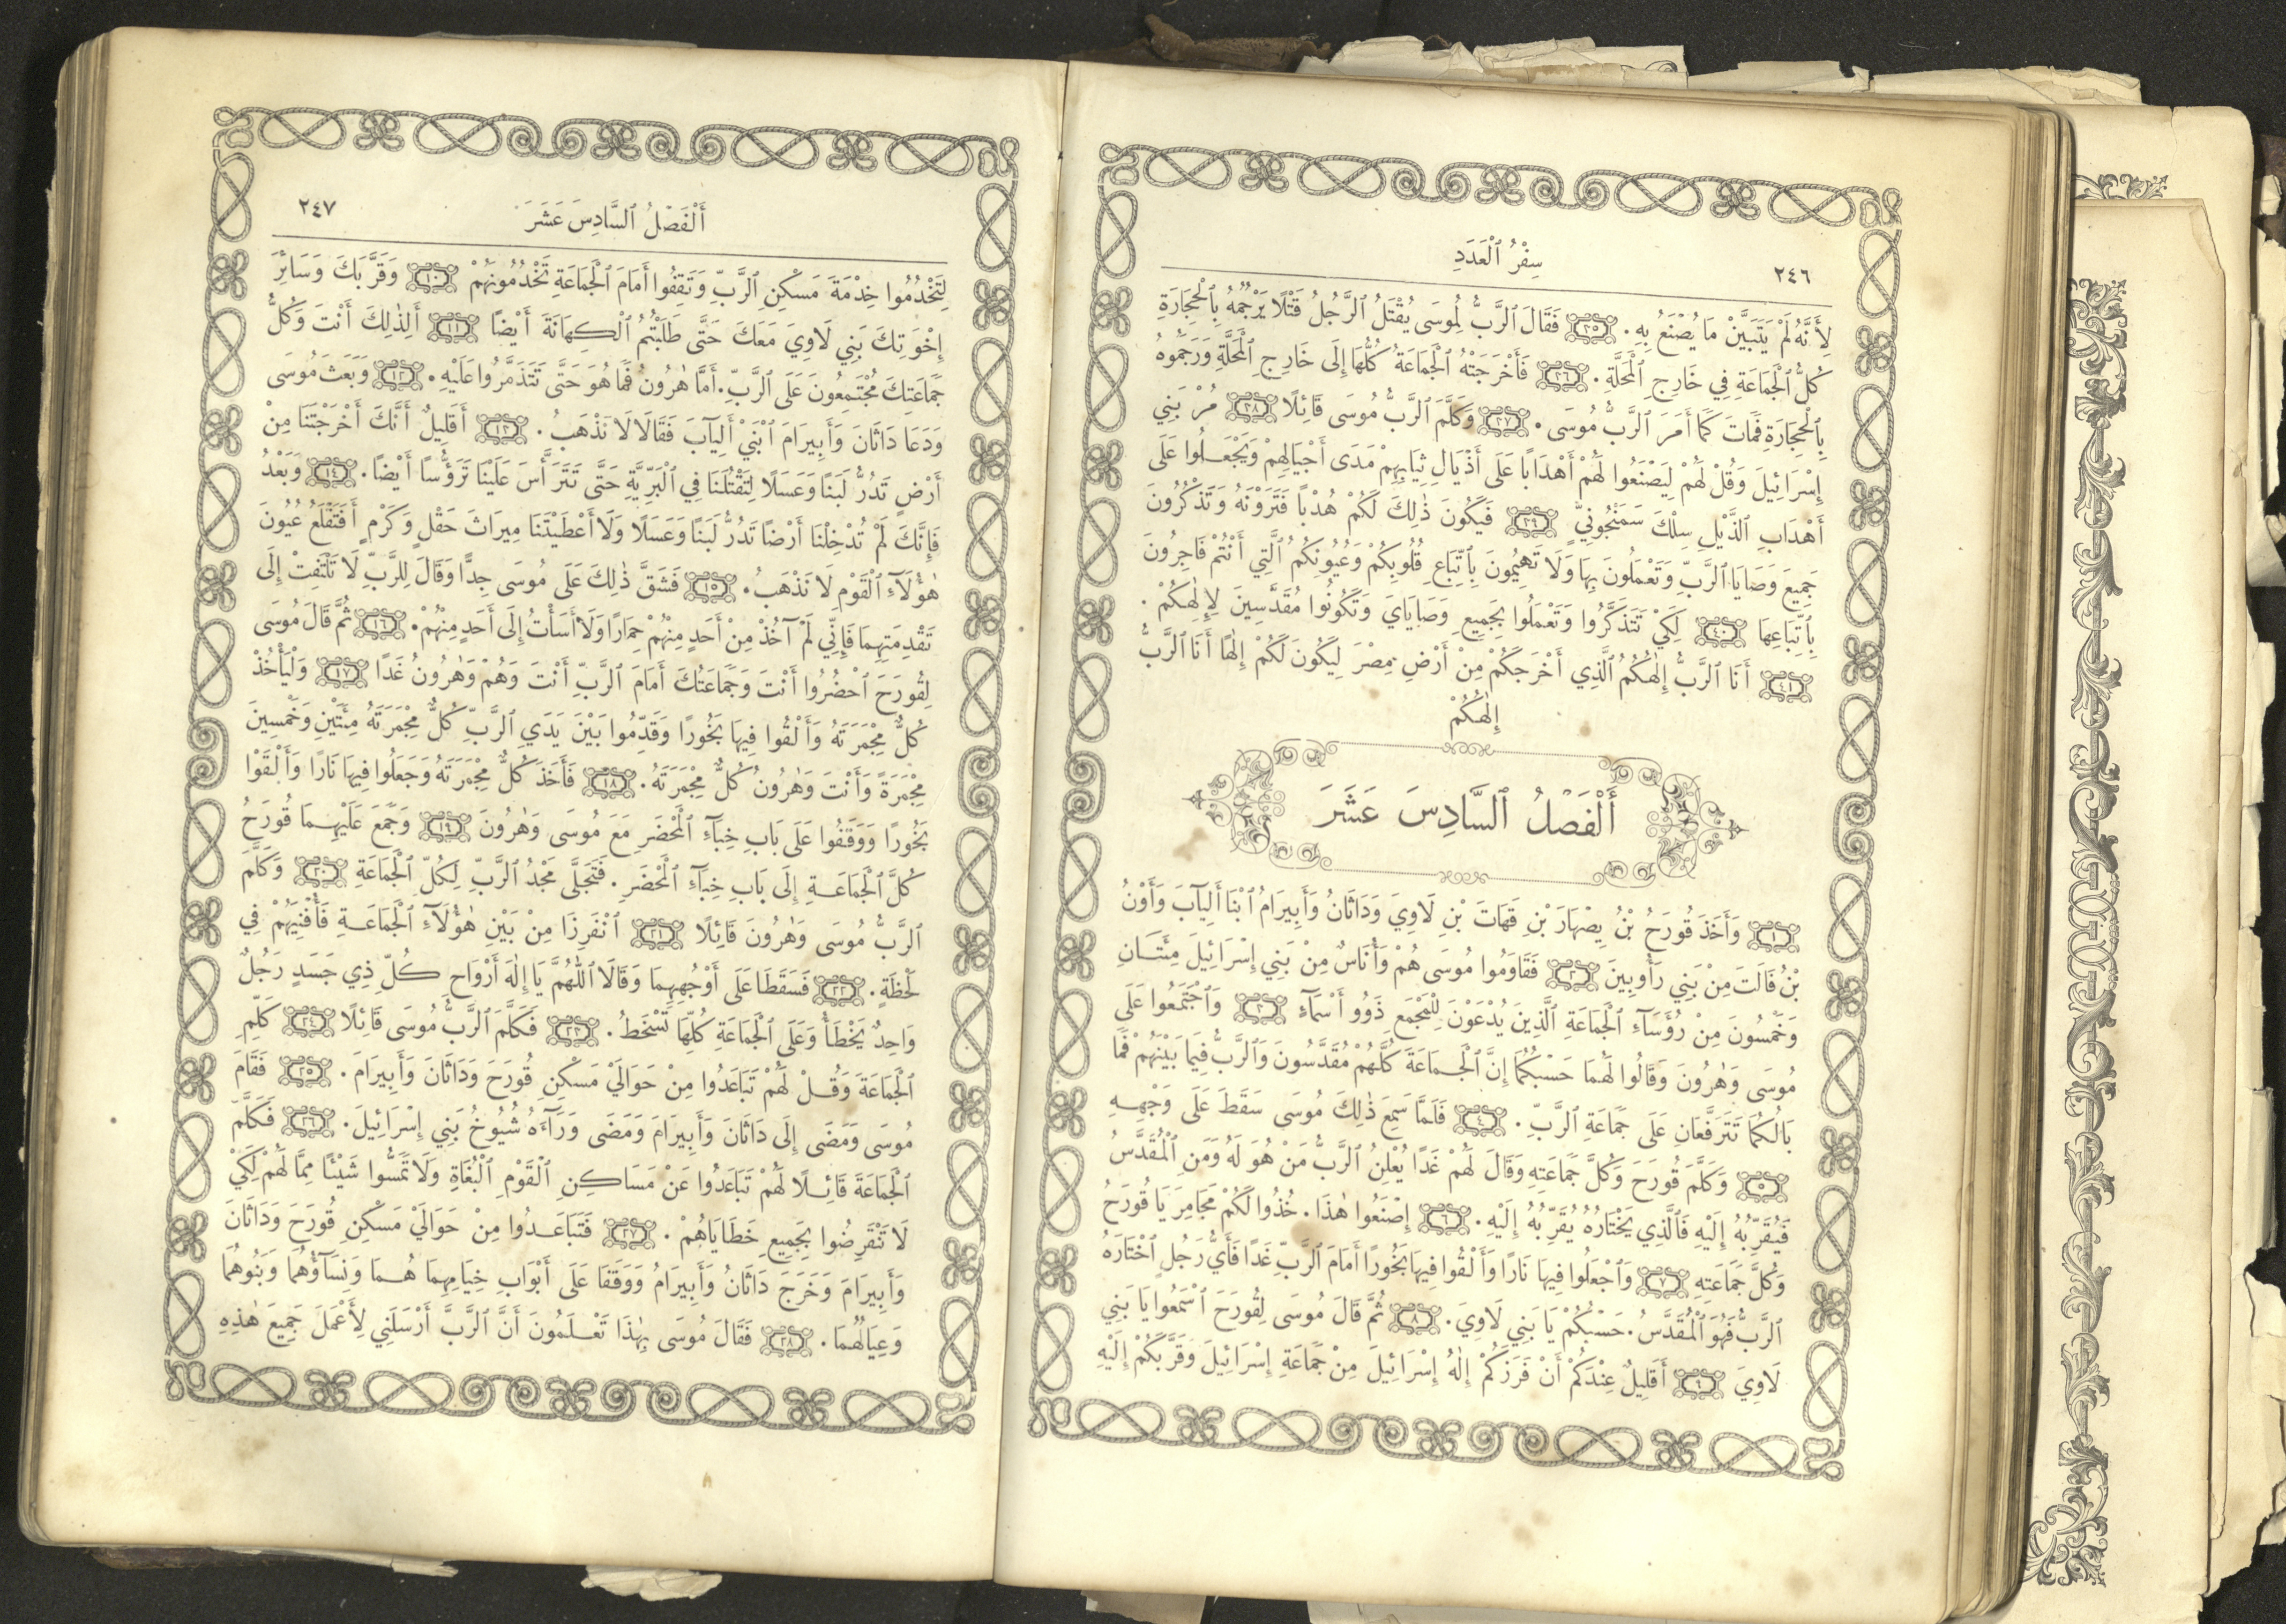 ٢٤٦
سِفْرُ ٱلْعَدَدِ
لِأَنَّهُ لَمْ يَتَبَيَّنْ مَا يُصْنَعُ بِهِ. ٣٥ فَقَالَ ٱلرَّبُّ لِمُوسَى يُقْتَلُ ٱلرَّجُلُ قَتْلًا يَرْجُمُهُ بِٱلْحِجَارَةِ
كُلُّ ٱلْجَمَاعَةِ فِي خَارِجِ ٱلْمَحَلَّةِ. ٣٦ فَأَخْرَجَتْهُ ٱلْجَمَاعَةُ كُلُّهَا إِلَى خَارِجِ ٱلْمَحَلَّةِ وَرَجَمُوهُ
بِٱلْحِجَارَةِ فَمَاتَ كَمَا أَمَرَ ٱلرَّبُّ مُوسَى. ٣٧ وَكَلَّمَ ٱلرَّبُّ مُوسَى قَائِلًا ٣٨ مُرْ بَنِي
إِسْرَائِيلَ وَقُلْ لَهُمْ لِيَصْنَعُوا لَهُمْ أَهْدَابًا عَلَى أَذْيَالِ ثِيَابِهِمْ مَدَى أَجْيَالِهِمْ وَيَجْعَلُوا عَلَى
أَهْدَابِ ٱلذَّيْلِ سِلْكَ سَمَنْجُونِيٍّ ٣٩ فَيَكُونَ ذٰلِكَ لَكُمْ هُدْبًا فَتَرَوْنَهُ وَتَذْكُرُونَ
جَمِيعَ وَصَايَا ٱلرَّبِّ وَتَعْمَلُونَ بِهَا وَلَا تَهِيمُونَ بِٱتِّبَاعِ قُلُوبِكُمْ وَعُيُونِكُمُ ٱلَّتِي أَنْتُمْ فَاجِرُونَ
بِٱتِّبَاعِهَا ٤٠ لِكَيْ تَتَذَكَّرُوا وَتَعْمَلُوا بِجَمِيعِ وَصَايَايَ وَتَكُونُوا مُقَدَّسِينَ لِإِلٰهِكُمْ.
٤١ أَنَا ٱلرَّبُّ إِلٰهُكُمُ ٱلَّذِي أَخْرَجَكُمْ مِنْ أَرْضِ مِصْرَ لِيَكُونَ لَكُمْ إِلٰهًا أَنَا ٱلرَّبُّ
إِلٰهُكُمْ
أَلْفَصْلُ ٱلسَّادِسَ عَشَرَ
١ وَأَخَذَ قُورَحُ بْنُ يِصْهَارَ بْنِ قَهَاتَ بْنِ لَاوِيَ وَدَاثَانُ وَأَبِيرَامُ ٱبْنَا أَلِيآبَ وَأَوْنُ
بْنُ فَالَتَ مِنْ بَنِي رَأُوبِينَ ٢ فَقَاوَمُوا مُوسَى هُمْ وَأُنَاسٌ مِنْ بَنِي إِسْرَائِيلَ مِئَتَانِ
وَخَمْسُونَ مِنْ رُؤَسَآءِ ٱلْجَمَاعَةِ ٱلَّذِينَ يُدْعَوْنَ لِلْمَجْمَعِ ذَوُو أَسْمَآءٍ ٣ وَٱجْتَمَعُوا عَلَى
مُوسَى وَهٰرُونَ وَقَالُوا لَهُمَا حَسْبُكُمَا إِنَّ ٱلْجَمَاعَةَ كُلَّهُمْ مُقَدَّسُونَ وَٱلرَّبُّ فِيمَا بَيْنَهُمْ فَمَا
بَالُكُمَا تَتَرَفَّعَانِ عَلَى جَمَاعَةِ ٱلرَّبِّ. ٤ فَلَمَّا سَمِعَ ذٰلِكَ مُوسَى سَقَطَ عَلَى وَجْهِهِ
٥ وَكَلَّمَ قُورَحَ وَكُلَّ جَمَاعَتِهِ وَقَالَ لَهُمْ غَدًا يُعْلِنُ ٱلرَّبُّ مَنْ هُوَ لَهُ وَمَنِ ٱلْمُقَدَّسُ
فَيُقَرِّبُهُ إِلَيْهِ فَٱلَّذِي يَخْتَارُهُ يُقَرِّبُهُ إِلَيْهِ. ٦ إِصْنَعُوا هٰذَا. خُذُوا لَكُمْ مَجَامِرَ يَا قُورَحُ
وَكُلَّ جَمَاعَتِهِ ٧ وَٱجْعَلُوا فِيهَا نَارًا وَأَلْقُوا فِيهَا بَخُورًا أَمَامَ ٱلرَّبِّ غَدًا فَأَيُّ رَجُلٍ ٱخْتَارَهُ
ٱلرَّبُّ فَهُوَ ٱلْمُقَدَّسُ. حَسْبُكُمْ يَا بَنِي لَاوِيَ. ٨ ثُمَّ قَالَ مُوسَى لِقُورَحَ ٱسْمَعُوا يَا بَنِي
لَاوِيَ ٩ أَقَلِيلٌ عِنْدَكُمْ أَنْ فَرَزَكُمْ إِلٰهُ إِسْرَائِيلَ مِنْ جَمَاعَةِ إِسْرَائِيلَ وَقَرَّبَكُمْ إِلَيْهِ
أَلْفَصْلُ ٱلسَّادِسَ عَشَرَ
٢٤٧
لِتَخْدُمُوا خِدْمَةَ مَسْكِنِ ٱلرَّبِّ وَتَقِفُوا أَمَامَ ٱلْجَمَاعَةِ تَخْدُمُونَهُمْ ١٠ وَقَرَّبَكَ وَسَائِرَ
إِخْوَتِكَ بَنِي لَاوِيَ مَعَكَ حَتَّى طَلَبْتُمُ ٱلْكِهَانَةَ أَيْضًا ١١ أَلِذٰلِكَ أَنْتَ وَكُلُّ
جَمَاعَتِكَ مُجْتَمِعُونَ عَلَى ٱلرَّبِّ. أَمَّا هٰرُونُ فَمَا هُوَ حَتَّى تَتَذَمَّرُوا عَلَيْهِ. ١٢ وَبَعَثَ مُوسَى
وَدَعَا دَاثَانَ وَأَبِيرَامَ ٱبْنَيْ أَلِيآبَ فَقَالَا لَا نَذْهَبُ. ١٣ أَقَلِيلٌ أَنَّكَ أَخْرَجْتَنَا مِنْ
أَرْضٍ تَدُرُّ لَبَنًا وَعَسَلًا لِتَقْتُلَنَا فِي ٱلْبَرِّيَّةِ حَتَّى تَتَرَأَّسَ عَلَيْنَا تَرَؤُّسًا أَيْضًا. ١٤ وَبَعْدُ
فَإِنَّكَ لَمْ تُدْخِلْنَا أَرْضًا تَدُرُّ لَبَنًا وَعَسَلًا وَلَا أَعْطَيْتَنَا مِيرَاثَ حَقْلٍ وَكَرْمٍ أَفَتَقْلَعُ عُيُونَ
هٰؤُلَآءِ ٱلْقَوْمِ لَا نَذْهَبُ. ١٥ فَشَقَّ ذٰلِكَ عَلَى مُوسَى جِدًّا وَقَالَ لِلرَّبِّ لَا تَلْتَفِتْ إِلَى
تَقْدِمَتِهِمَا فَإِنِّي لَمْ آخُذْ مِنْ أَحَدٍ مِنْهُمْ حِمَارًا وَلَا أَسَأْتُ إِلَى أَحَدٍ مِنْهُمْ. ١٦ ثُمَّ قَالَ مُوسَى
لِقُورَحَ ٱحْضُرُوا أَنْتَ وَجَمَاعَتُكَ أَمَامَ ٱلرَّبِّ أَنْتَ وَهُمْ وَهٰرُونُ غَدًا ١٧ وَلْيَأْخُذْ
كُلٌّ مِجْمَرَتَهُ وَأَلْقُوا فِيهَا بَخُورًا وَقَدِّمُوا بَيْنَ يَدَيِ ٱلرَّبِّ كُلٌّ مِجْمَرَتَهُ مِئَتَيْنِ وَخَمْسِينَ
مِجْمَرَةً وَأَنْتَ وَهٰرُونُ كُلٌّ مِجْمَرَتَهُ. ١٨ فَأَخَذَ كُلٌّ مِجْمَرَتَهُ وَجَعَلُوا فِيهَا نَارًا وَأَلْقَوْا
بَخُورًا وَوَقَفُوا عَلَى بَابِ خِبَآءِ ٱلْمَحْضَرِ مَعَ مُوسَى وَهٰرُونَ ١٩ وَجَمَعَ عَلَيْهِمَا قُورَحُ
كُلَّ ٱلْجَمَاعَةِ إِلَى بَابِ خِبَآءِ ٱلْمَحْضَرِ. فَتَجَلَّى مَجْدُ ٱلرَّبِّ لِكُلِّ ٱلْجَمَاعَةِ ٢٠ وَكَلَّمَ
ٱلرَّبُّ مُوسَى وَهٰرُونَ قَائِلًا ٢١ ٱنْفَرِزَا مِنْ بَيْنِ هٰؤُلَآءِ ٱلْجَمَاعَةِ فَأُفْنِيَهُمْ فِي
لَحْظَةٍ. ٢٢ فَسَقَطَا عَلَى أَوْجُهِهِمَا وَقَالَا ٱللّٰهُمَّ يَا إِلٰهَ أَرْوَاحِ كُلِّ ذِي جَسَدٍ رَجُلٌ
وَاحِدٌ يَخْطَأُ وَعَلَى ٱلْجَمَاعَةِ كُلِّهَا تَسْخَطُ. ٢٣ فَكَلَّمَ ٱلرَّبُّ مُوسَى قَائِلًا ٢٤ كَلِّمِ
ٱلْجَمَاعَةَ وَقُلْ لَهُمْ تَبَاعَدُوا مِنْ حَوَالَيْ مَسْكِنِ قُورَحَ وَدَاثَانَ وَأَبِيرَامَ. ٢٥ فَقَامَ
مُوسَى وَمَضَى إِلَى دَاثَانَ وَأَبِيرَامَ وَمَضَى وَرَآءَهُ شُيُوخُ بَنِي إِسْرَائِيلَ. ٢٦ فَكَلَّمَ
ٱلْجَمَاعَةَ قَائِلًا لَهُمْ تَبَاعَدُوا عَنْ مَسَاكِنِ ٱلْقَوْمِ ٱلْبُغَاةِ وَلَا تَمَسُّوا شَيْئًا مِمَّا لَهُمْ لِكَيْ
لَا تَنْقَرِضُوا بِجَمِيعِ خَطَايَاهُمْ. ٢٧ فَتَبَاعَدُوا مِنْ حَوَالَيْ مَسْكِنِ قُورَحَ وَدَاثَانَ
وَأَبِيرَامَ وَخَرَجَ دَاثَانُ وَأَبِيرَامُ وَوَقَفَا عَلَى أَبْوَابِ خِيَامِهِمَا هُمَا وَنِسَآؤُهُمَا وَبَنُوهُمَا
وَعِيَالُهُمَا. ٢٨ فَقَالَ مُوسَى بِهٰذَا تَعْلَمُونَ أَنَّ ٱلرَّبَّ أَرْسَلَنِي لِأَعْمَلَ جَمِيعَ هٰذِهِ